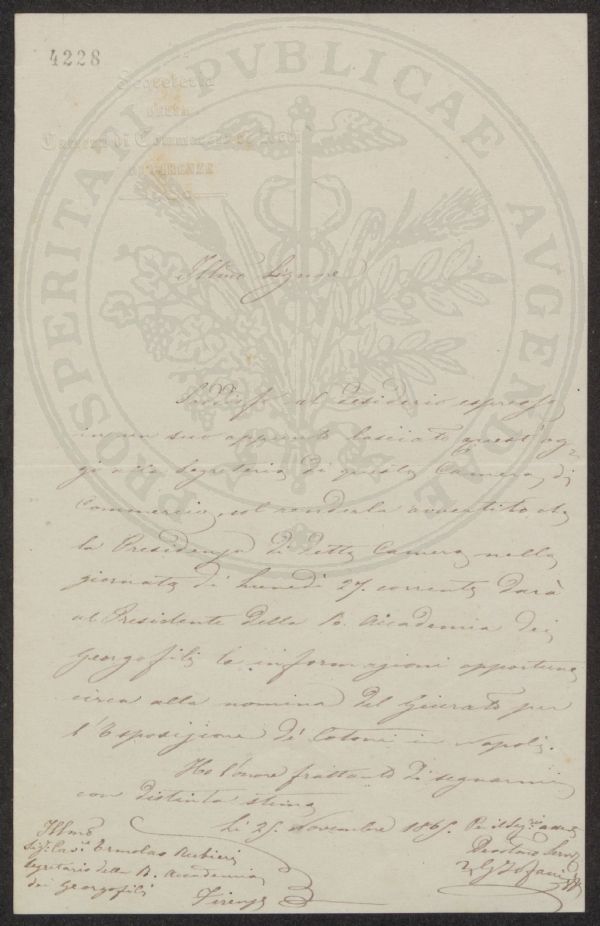 4228
Segreteria
DELLA
Camera di Commercio ed Arti
DI FIRENZE
PROSPERITATI PVBLICAE AVGENDAE
Illmo Signore
Soddisfo al desiderio espresso
in un suo appunto lasciato quest'og-
gi alla Segreteria di questa Camera di
Commercio, col renderla avvertito che
la Presidenza di detta Camera nella
giornata di Lunedì 27. corrente darà
al Presidente della R. Accademia dei
Georgofili le informazioni opportune
circa alla nomina del Giurato per
l'Esposizione de' Cotoni in Napoli.
Ho l'onore frattanto di segnarmi
con distinta stima
Li 25. Novembre 1865.
Devotmo Servo
Illmo
Sigr Cavre Ermolao Rubieri
Segretario della R. Accademia
dei Georgofili
Firenze